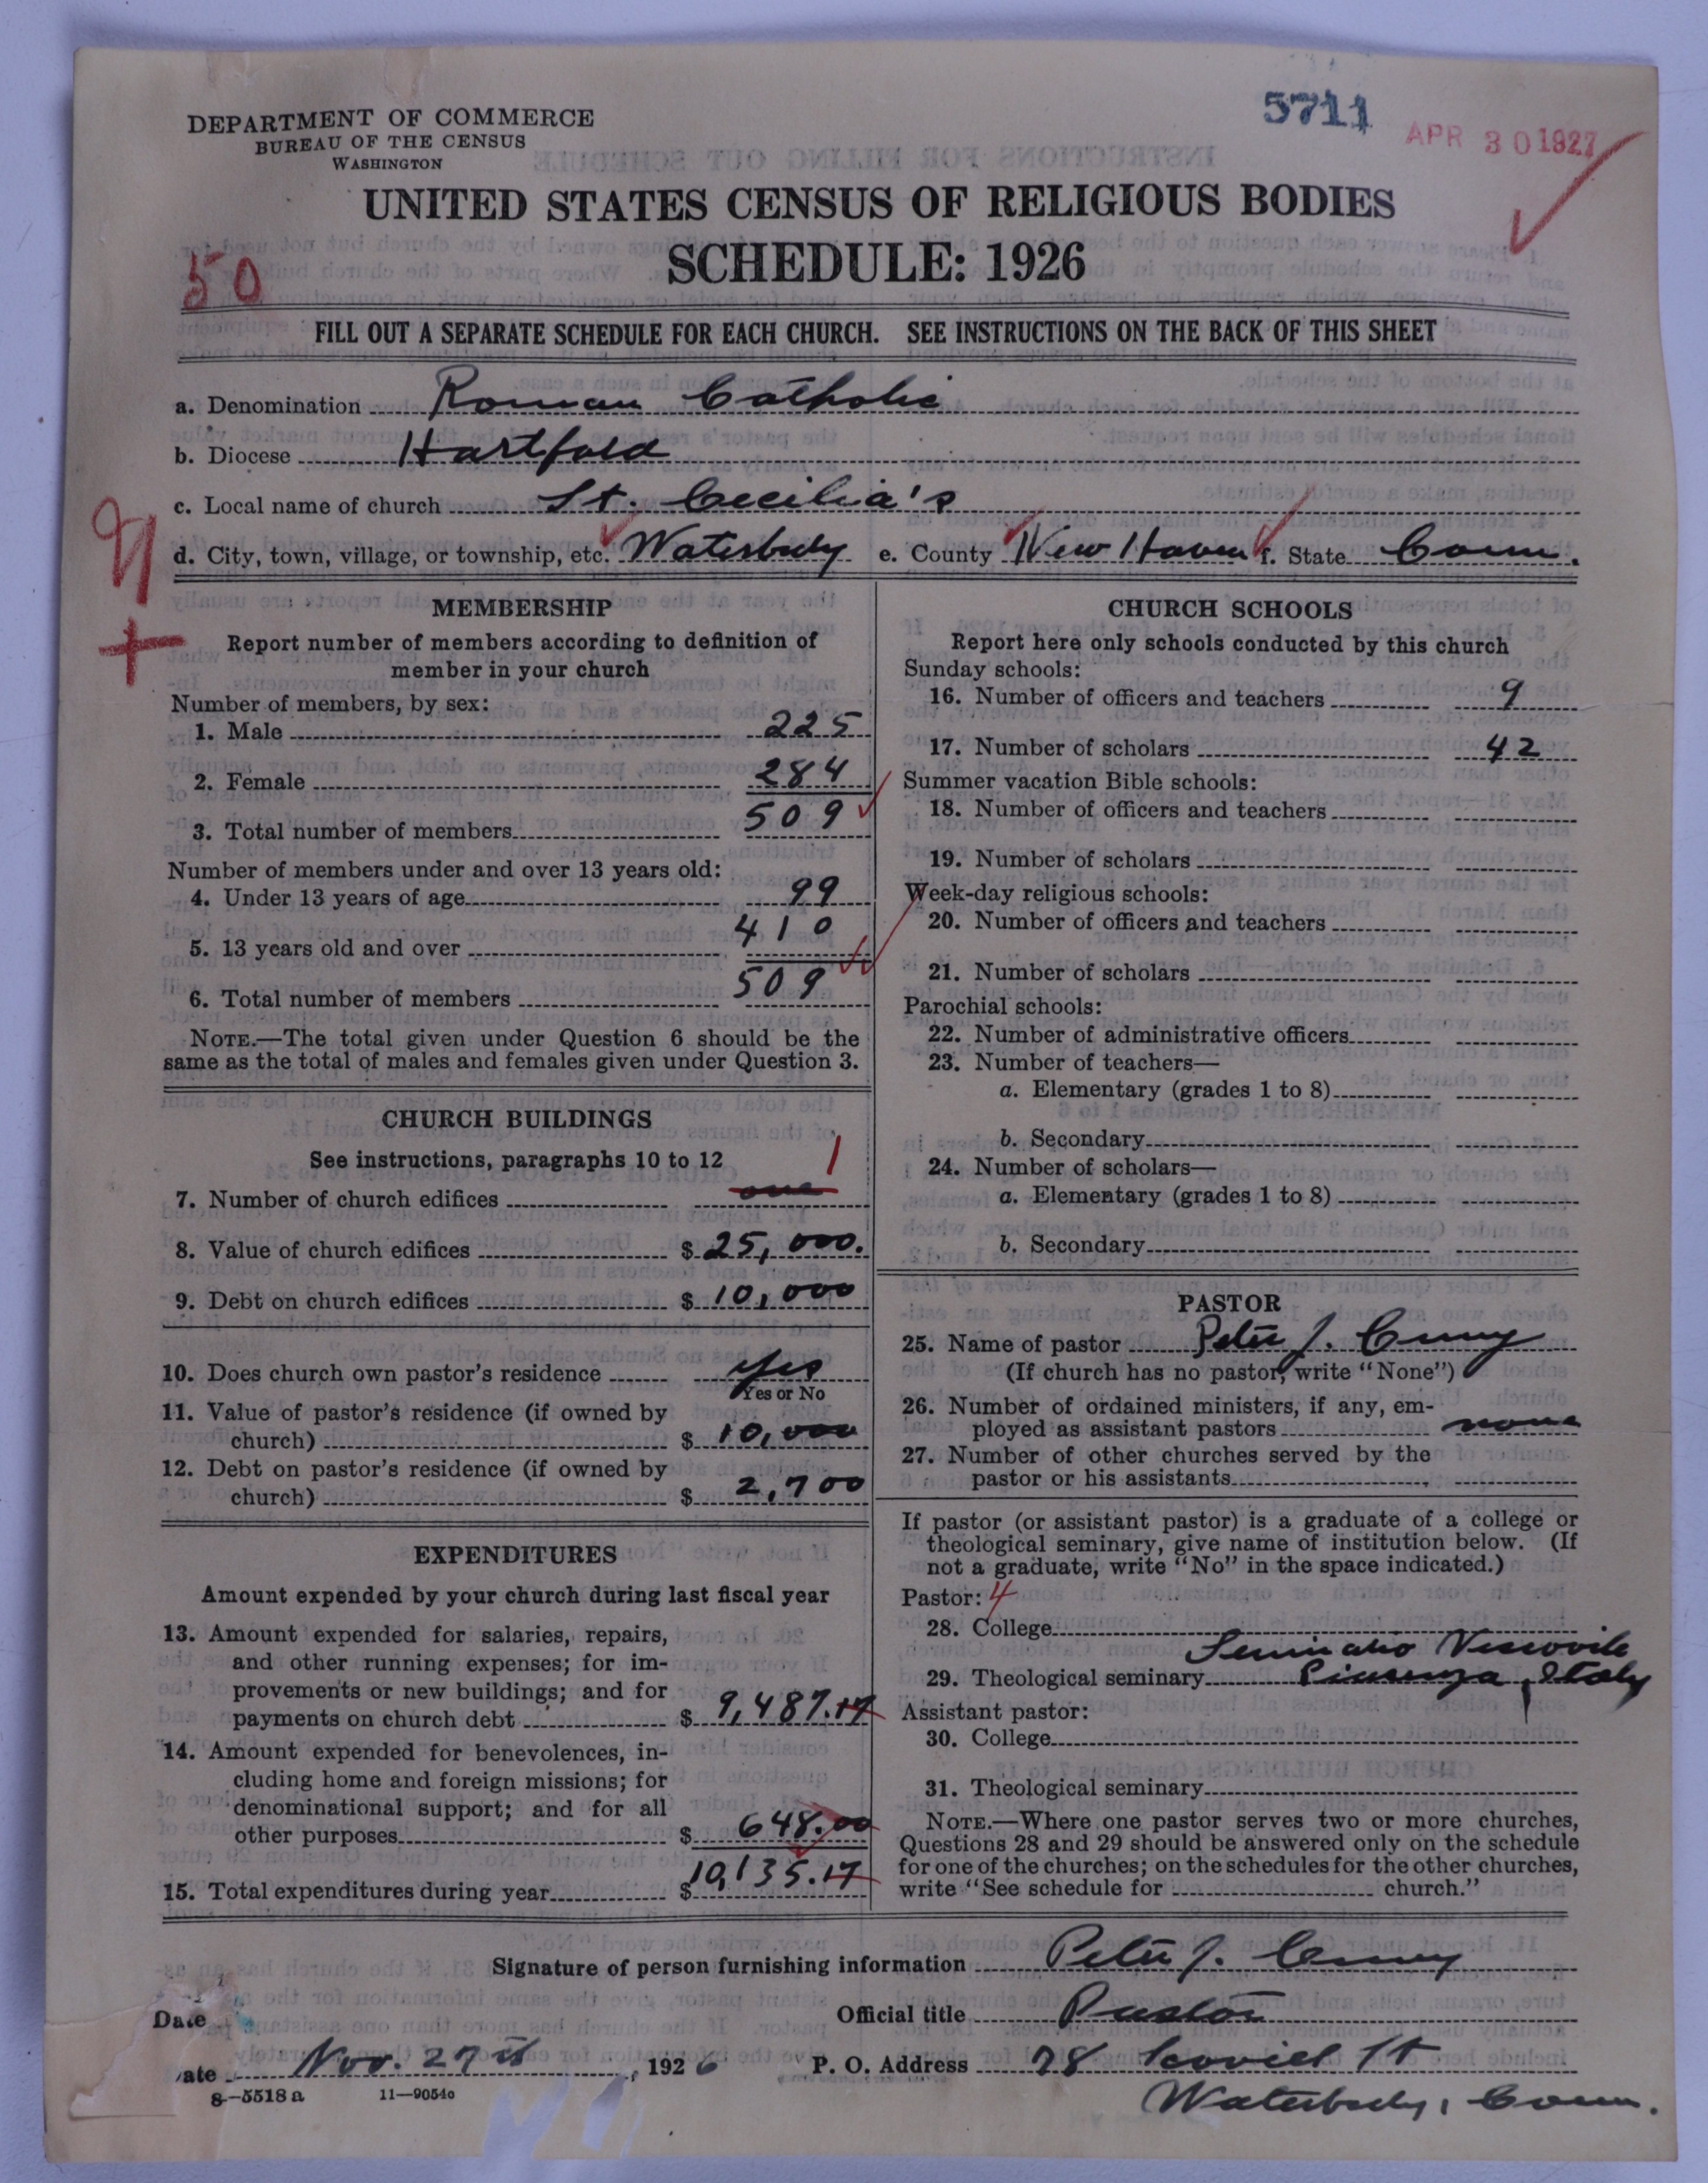 DEPARTMENT OF COMMERCE
BUREAU OF THE CENSUS
WASHINGTON
5711
APR 30 1927
UNITED STATES CENSUS OF RELIGIOUS BODIES
SCHEDULE: 1926
50
FILL OUT A SEPARATE SCHEDULE FOR EACH CHURCH. SEE INSTRUCTIONS ON THE BACK OF THIS SHEET
a. Denomination Roman Catholic
b. Diocese Hartford
c. Local name of church St. Cecilia's
d. City, town, village, or township, etc. Waterbury e. County New Haven f. State Conn.
MEMBERSHIP
Report number of members according to definition of
member in your church
Number of members, by sex:
1. Male 225
2. Female 284
3. Total number of members 509
Number of members under and over 13 years old:
4. Under 13 years of age 99
5. 13 years old and over 410
6. Total number of members 509
NOTE.—The total given under Question 6 should be the
same as the total of males and females given under Question 3.
CHURCH BUILDINGS
See instructions, paragraphs 10 to 12
1
7. Number of church edifices one
8. Value of church edifices $ 25,000.
9. Debt on church edifices $ 10,000
10. Does church own pastor's residence yes
Yes or No
11. Value of pastor's residence (if owned by
church) $ 10,000
12. Debt on pastor's residence (if owned by
church) $ 2,700
EXPENDITURES
Amount expended by your church during last fiscal year
13. Amount expended for salaries, repairs,
and other running expenses; for im-
provements or new buildings; and for
payments on church debt $ 9,487.17
14. Amount expended for benevolences, in-
cluding home and foreign missions; for
denominational support; and for all
other purposes $ 648.00
15. Total expenditures during year $ 10,135.17
CHURCH SCHOOLS
Report here only schools conducted by this church
Sunday schools:
16. Number of officers and teachers 9
17. Number of scholars 42
Summer vacation Bible schools:
18. Number of officers and teachers
19. Number of scholars
Week-day religious schools:
20. Number of officers and teachers
21. Number of scholars
Parochial schools:
22. Number of administrative officers
23. Number of teachers—
a. Elementary (grades 1 to 8)
b. Secondary
24. Number of scholars—
a. Elementary (grades 1 to 8)
b. Secondary
PASTOR
25. Name of pastor Peter J.
(If church has no pastor, write "None")
26. Number of ordained ministers, if any, em-
ployed as assistant pastors none
27. Number of other churches served by the
pastor or his assistants
If pastor (or assistant pastor) is a graduate of a college or
theological seminary, give name of institution below. (If
not a graduate, write "No" in the space indicated.)
Pastor: 4
28. College
29. Theological seminary Italy
Assistant pastor:
30. College
31. Theological seminary
NOTE.—Where one pastor serves two or more churches,
Questions 28 and 29 should be answered only on the schedule
for one of the churches; on the schedules for the other churches,
write "See schedule for church."
Signature of person furnishing information Peter J.
Date
Official title Pastor
ate Nov. 27th, 1926
P. O. Address 78 Scovill St
Waterbury, Conn.
8—5518 a 11—9054o